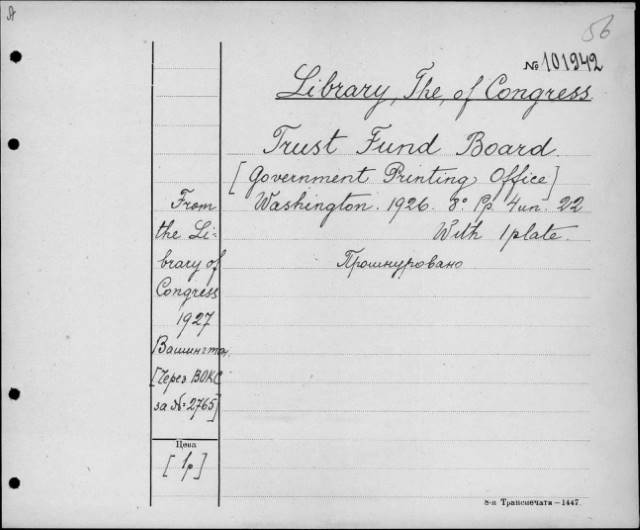 56
№ 101942
Library, The, of Congress
Trust Fund Board.
[Government Printing Office]
Washington. 1926. 8° Pp. 4 un. 22
With 1 plate.
Прошнуровано
From
the Li-
brary of
Congress
1927
Вашингтон.
[Через ВОКС
за №: 2765]
Цена
[1р]
8-я Транспечати—1447.